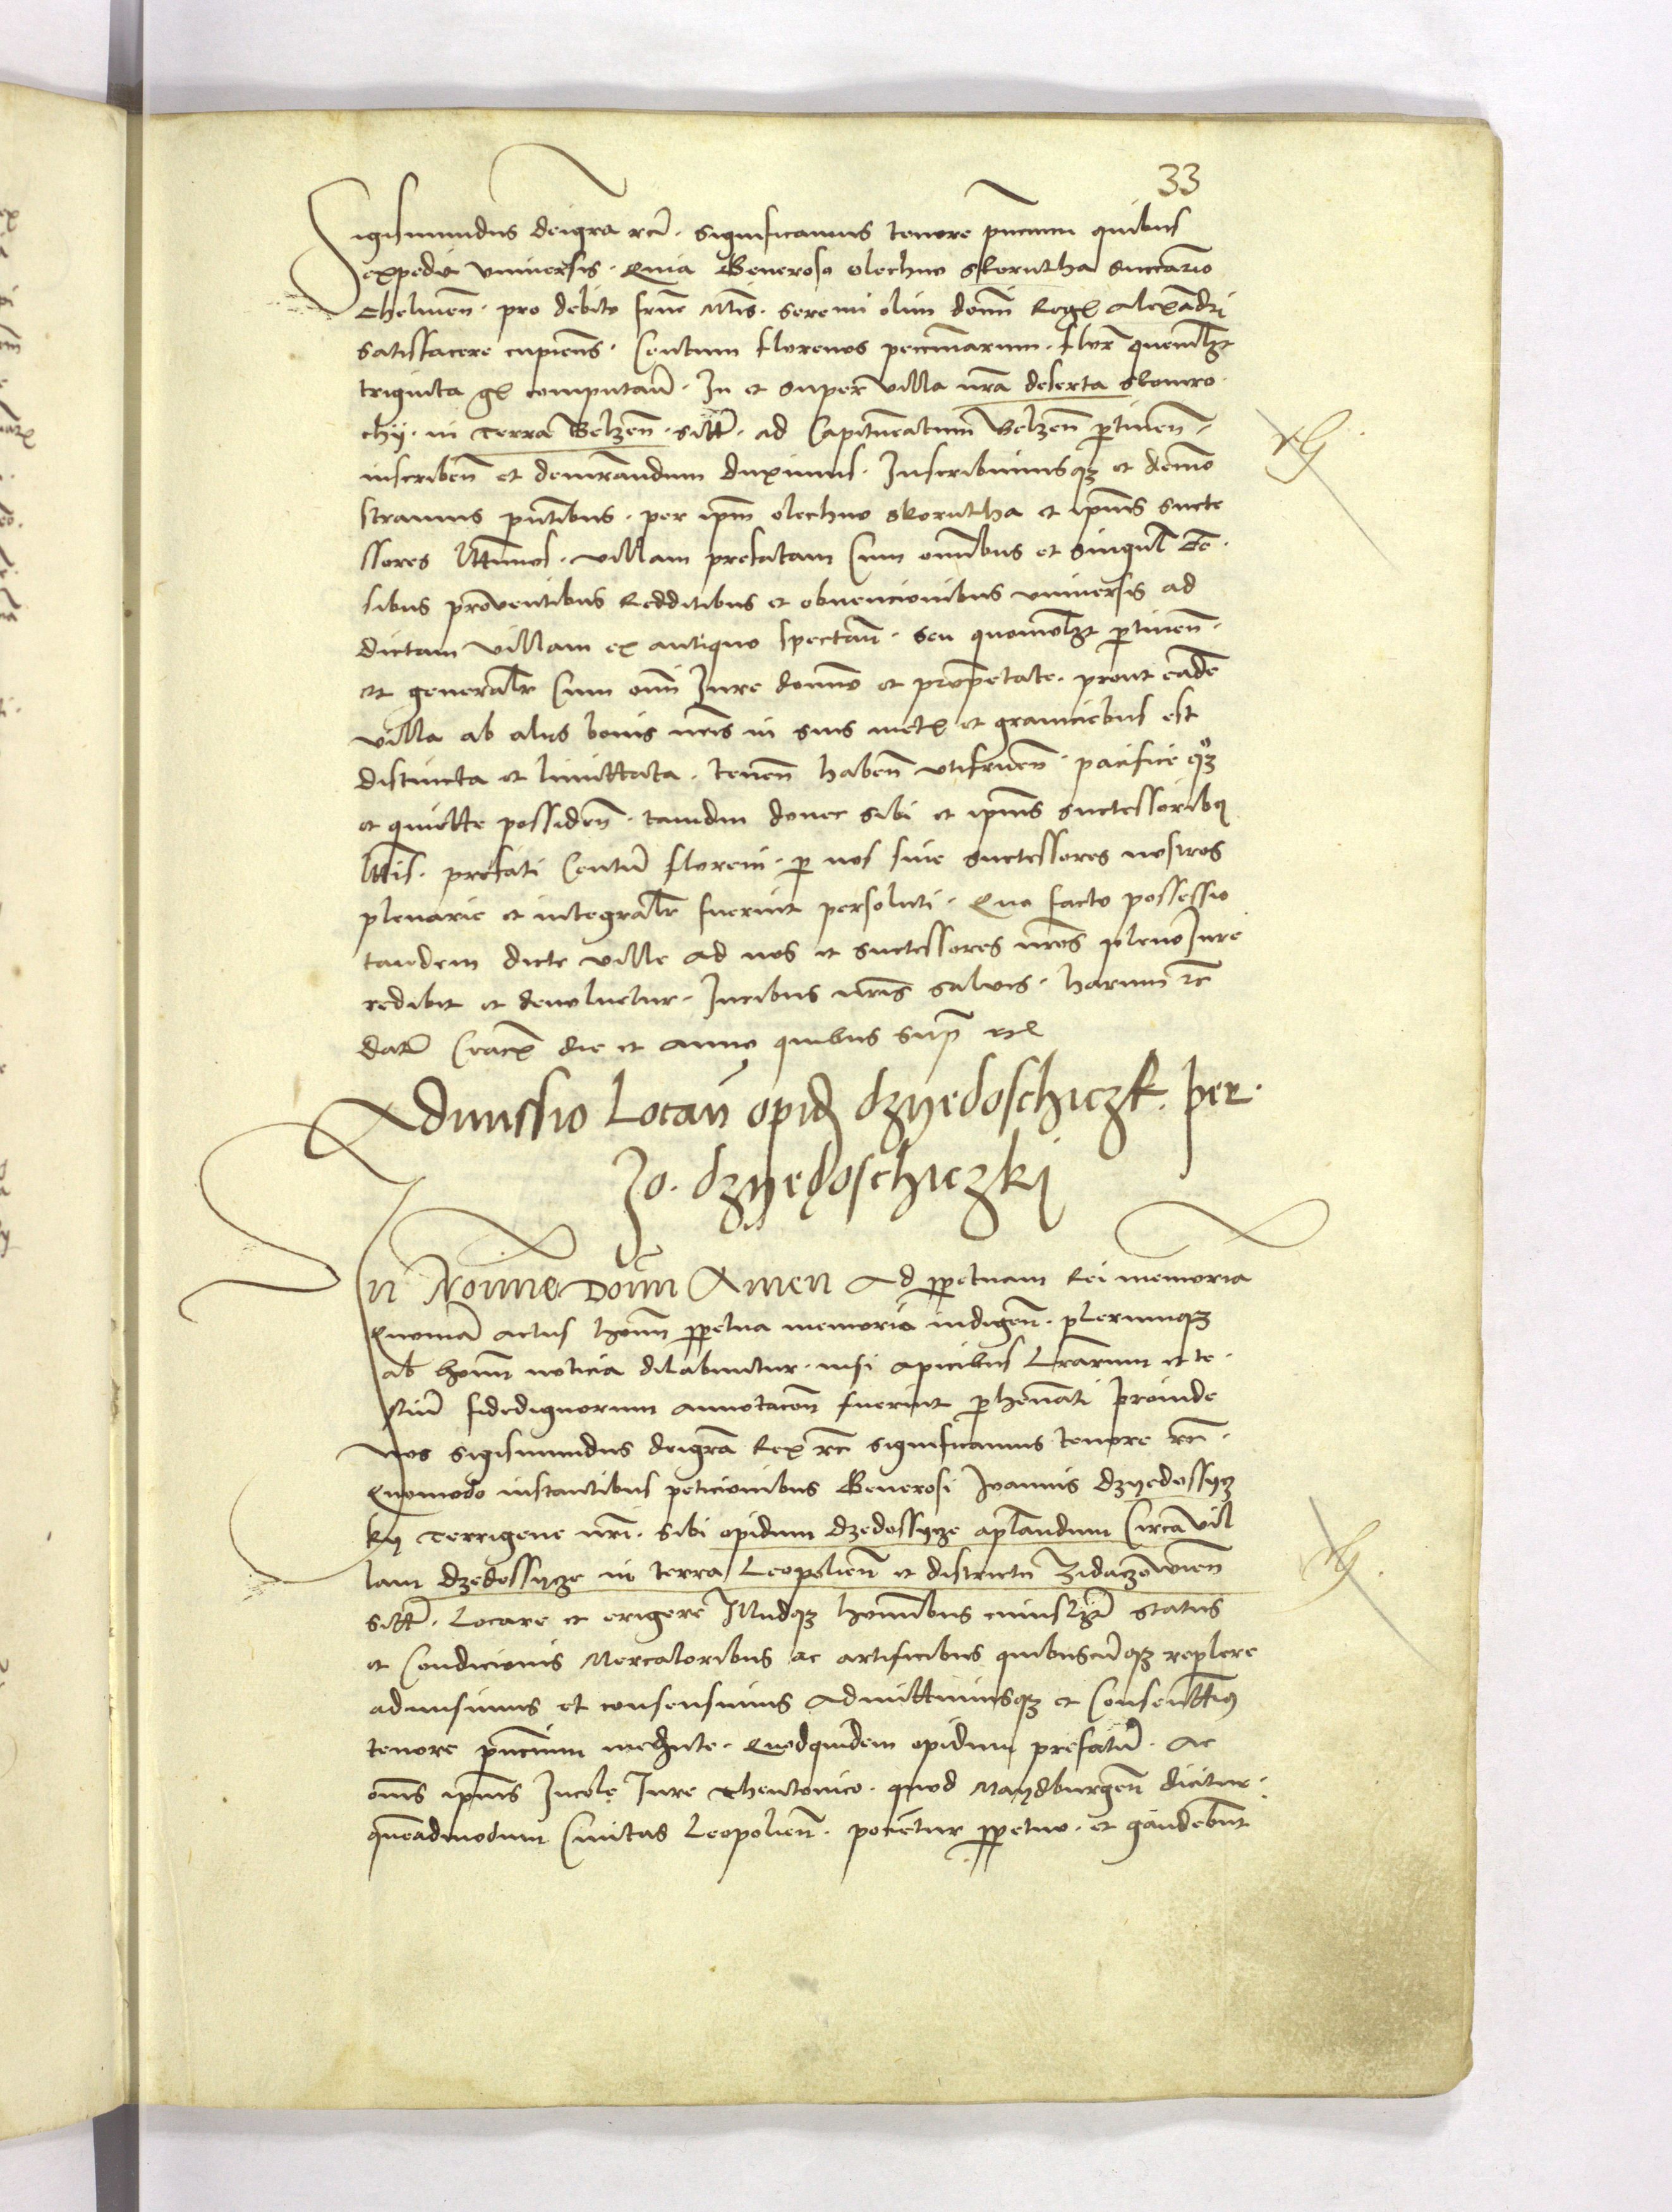 33
Sigismundus deigra rcī. significamus tenore pñcium quibus
expedit vniversis. Quia Generoso olechno skorutha Succamerario
Chelmeñ. pro debito frñe Mtis. sereni olim domini Regis Alexādri
satisfacere cupiens. Centum florenos peccuniarum. flor̄ quemlibet
triginta gʒ computañ. In et super villa nrā deserta slomiro
chy. in Terra Belzeñ. sitt̄. ad Capitneatum Belzeñ ptineñ.
inscribeñ et demrandum duximus. Inscribimusqʒ et demō
stramus pñtibus. per ipm̄ olechno skorutha et ipius succe
ssores lttimos. villam prefatam Cum omnibus et singul̄ cē
sibus proventibus Redditibus et obvencionibus vniversis ad
dictam villam ex antiquo spectañ. seu quomolʒt ptineñ.
et generalr̄ Cum omni Jure domīo et proprietate. prout eadē
villa ab aliis bonis nr̄is in suis metʒ et graniciebus est
distincta et limittata. teneñ habeñ vtifrueñ. pacifice qʒ
et quiette possideñ. tamdiu donec sibi et ipius successoribus
lttis. prefati Centū floreni. p nos sive successores nostros
plenarie et integralr̄ fuerint persoluti. Quo facto possessio
tandem dicte ville ad nos et successores nr̄os pleno Jure
redibit et devoluetur. Juribus nr̄is salvis. harum rc̄
datū Cracʒ die et anno quibus sup̄ rcʒ
Admissio Locañ opid̄ dzyedoschiczk. per.
Jo. dzyędoschiczkj
In Nomine Domini Amen Ad ppetuam Rei memoria
Quoniā actus homī ppetua memoria indigeñ. plerumqʒ
ab homī noticia dilabuntur. nisi apicibus Lrārum et te.
stiū fidedignorum annotacoñ fuerint phennati proinde
Nos sigismundus deigrā Rex rc̄ significamus tenore rc̄.
Quomodo instantibus peticionibus Generosi Joannis dzyedossycz
ky Terrigene nr̄i. sibi opidum dzedossycze aplandum Circa vil
lam dzedossycze in terra Leopolieñ et districtu Zidaczowieñ
sitt̄. Locare et erigere Illudqʒ hominibus cuiuslʒt status
et Condicionis Mercatoribus ac artificibus quibuscūqʒ replere
admisimus et consensimus admittimusqʒ et Consenttimꝰ
tenore pñcium mediante. Quodquidem opidum prefatū. ac
om̄s ipius Incole Jure theutonico. quod Maydburgeñ dicitur.
queadmodum Civitas Leopolieñ. pocietur ppetuo. et gaudebūt